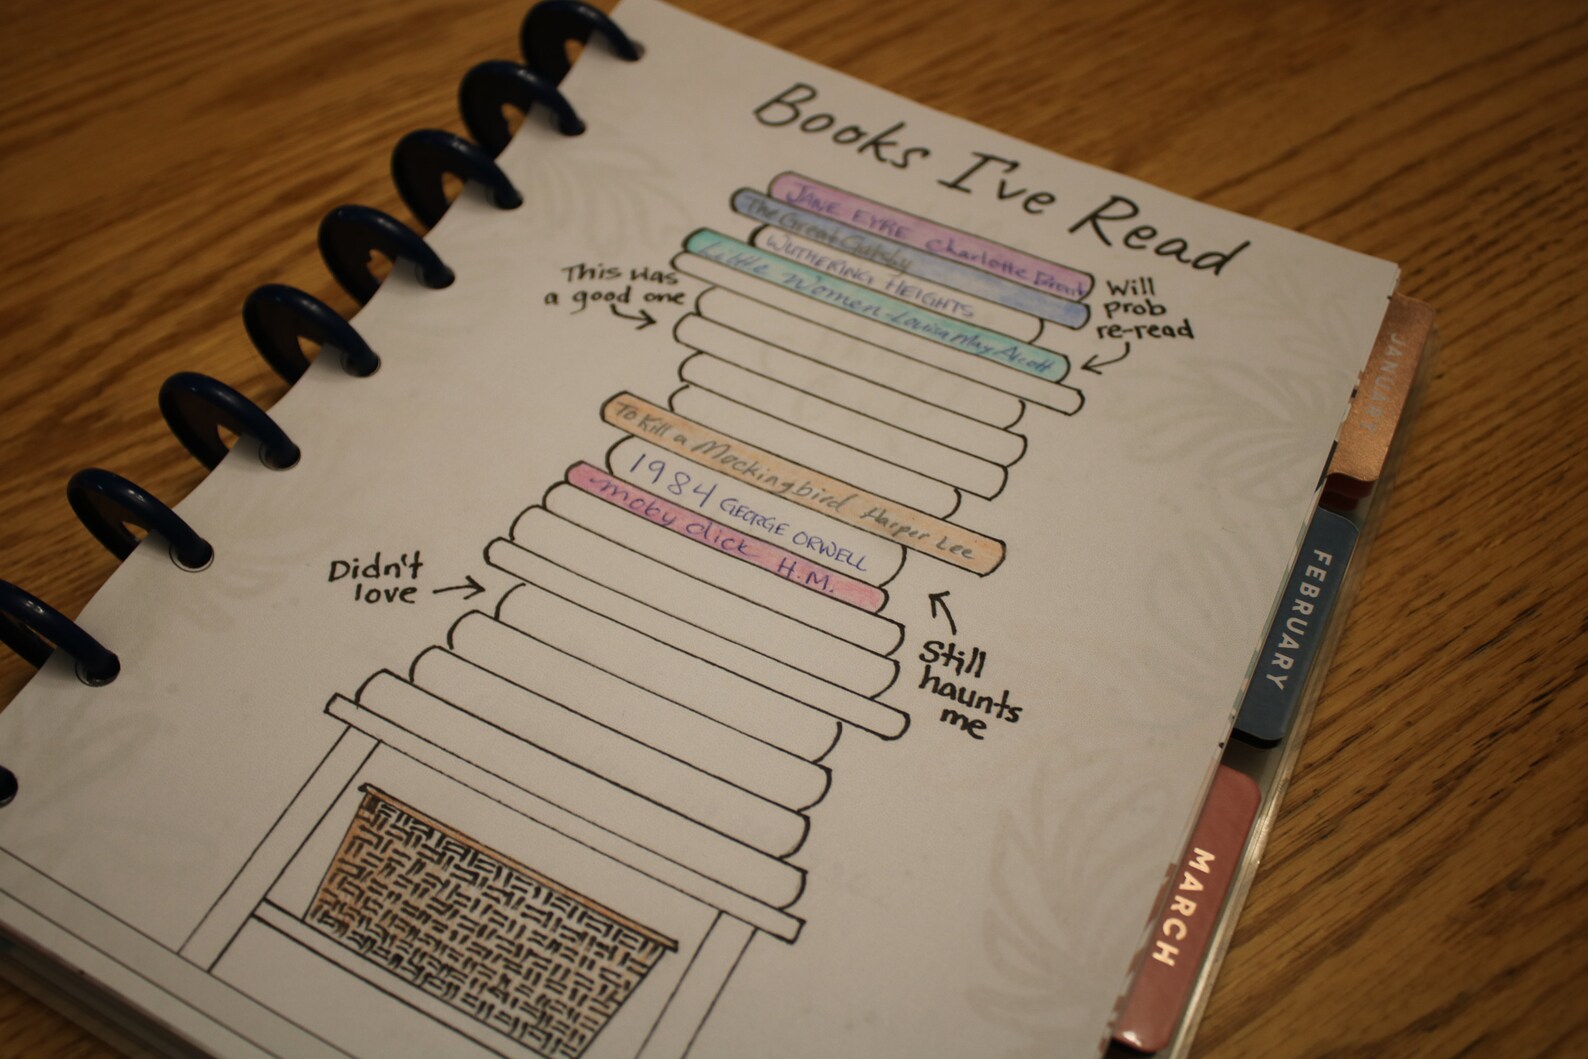 Books I've Read
JANE EYRE Charlotte Bront
The Great Gatsby
WUTHERING HEIGHTS
Little Women - Louisa May Alcott
This was
a good one
Will
prob
re-read
To Kill a Mockingbird Harper Lee
1984 GEORGE ORWELL
moby dick H.M.
Didn't
love
Still
haunts
me
JANUARY
FEBRUARY
MARCH